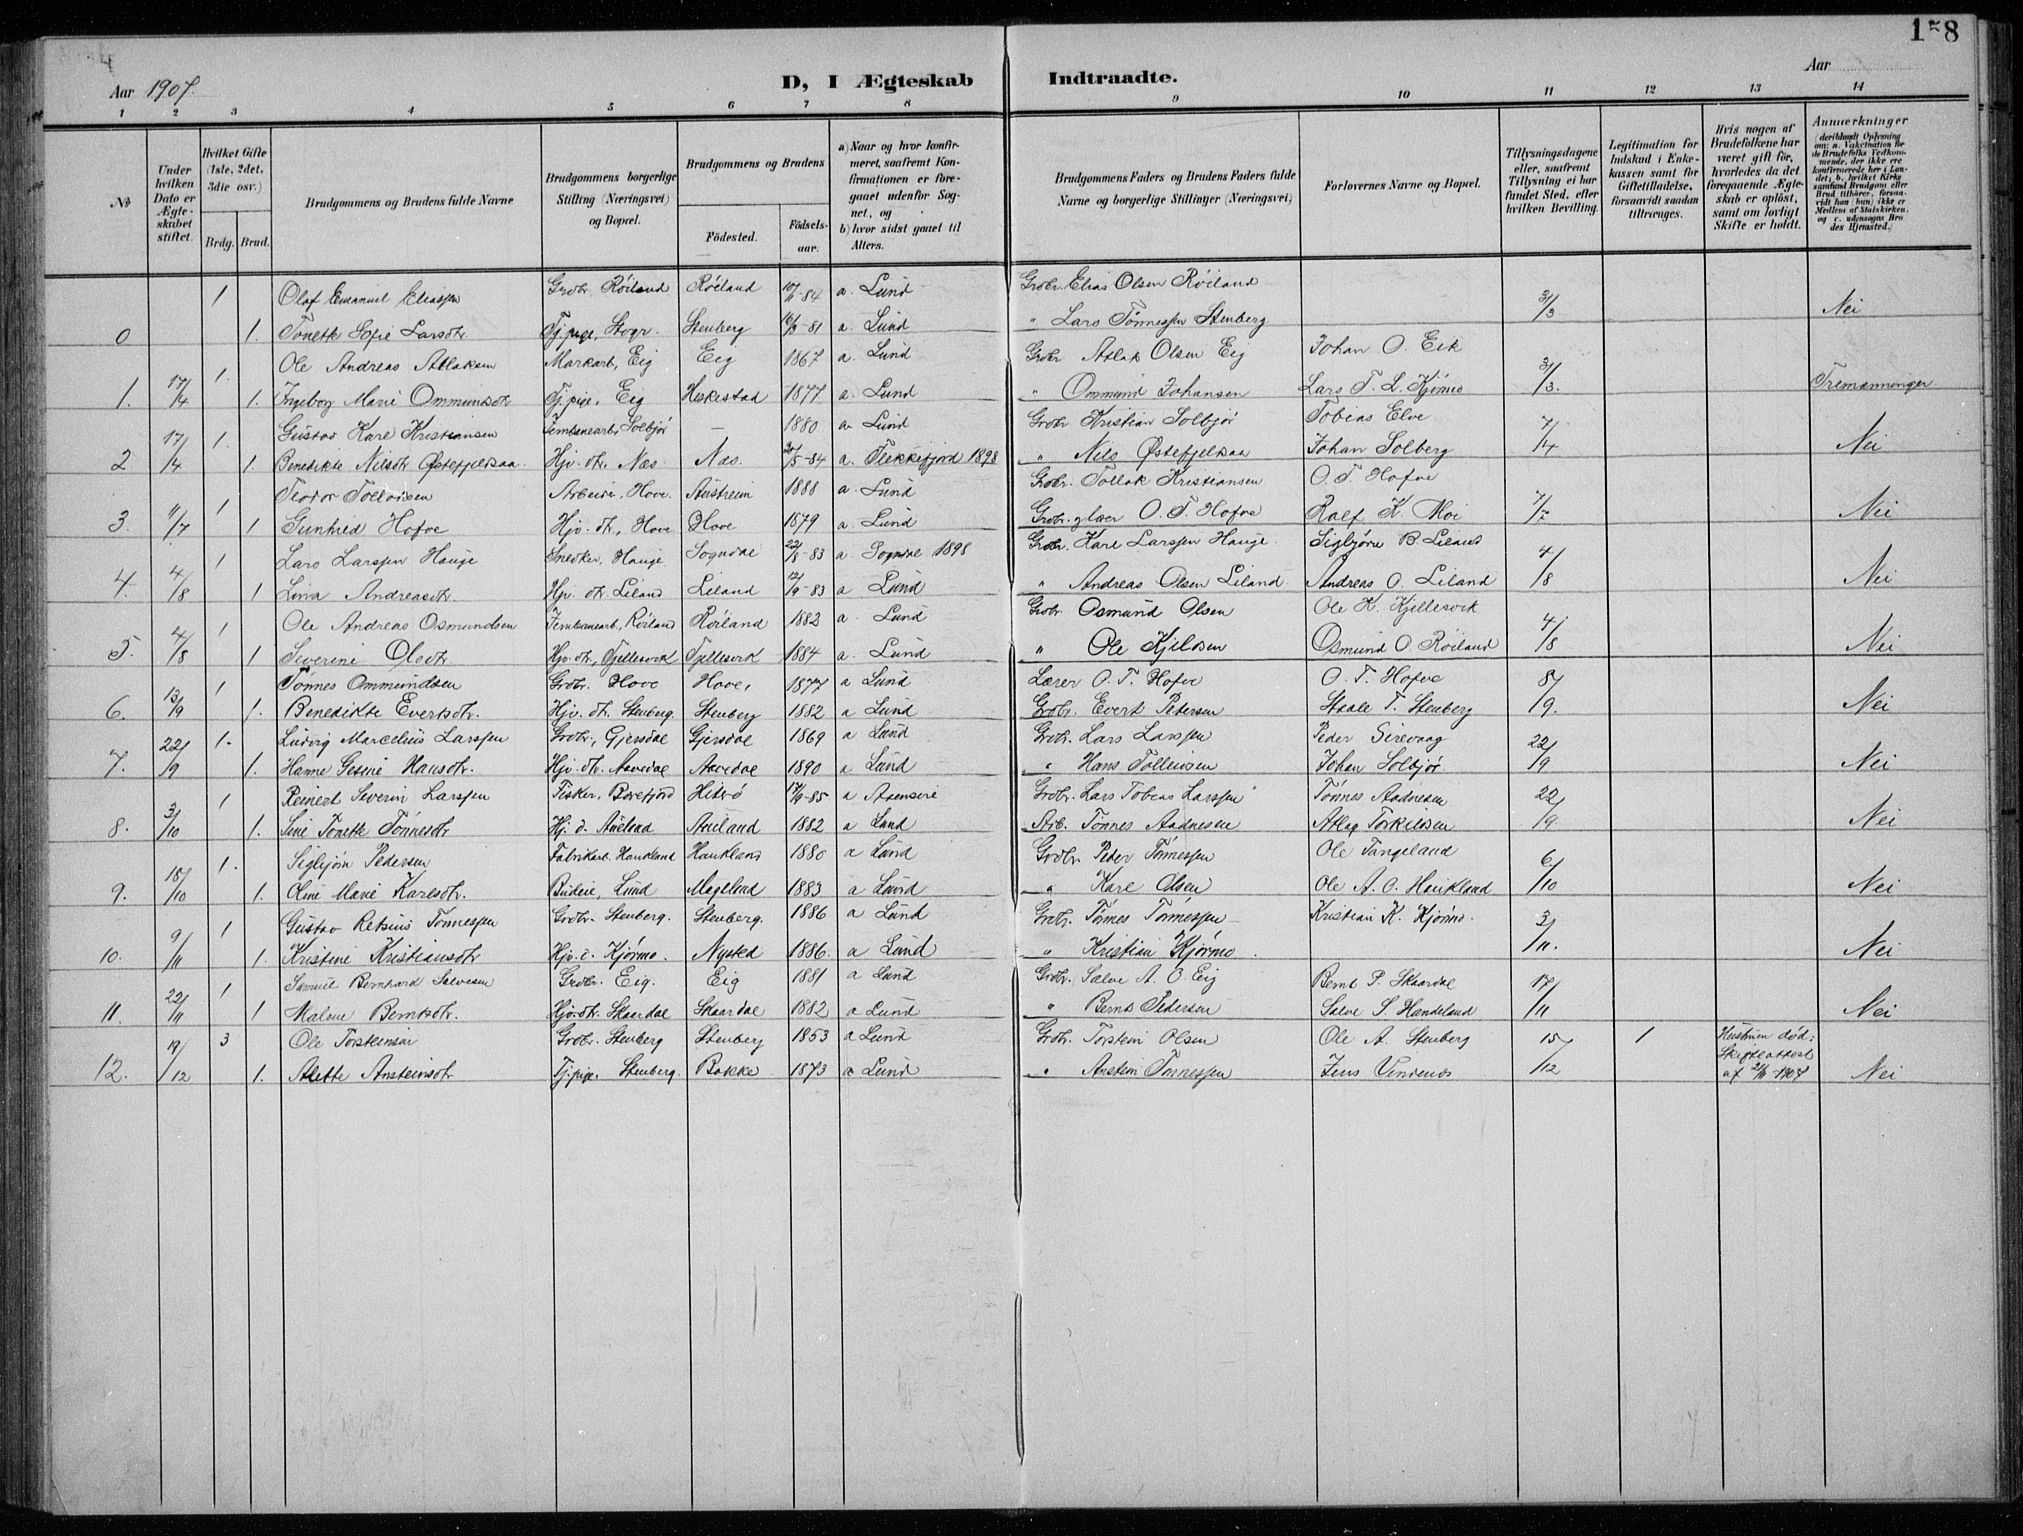 158
Aar 1907
D, I Ægteskab Indtraadte.
Aar
1 2 3 4 5 6 7 8 9 10 11 12 13 14
No
Under hvilken Dato er Ægteskabet stiftet.
Hvilket Gifte (1ste, 2det, 3die osv.)
Brdg. Brud.
Brudgommens og Brudens fulde Navne
Brudgommens borgerlige Stilling (Næringsvei) og Bopæl.
Brudgommens og Brudens
Fødested.
Fødselsaar.
a) Naar og hvor konfirmeret, saafremt Konfirmationen er foregaaet udenfor Sognet, og
b) hvor sidst gaaet til Alters.
Brudgommens Faders og Brudens Faders fulde Navne og borgerlige Stillinger (Næringsvei)
Forlovernes Navne og Bopæl.
Tillysningsdagene eller, saafremt Tillysning ei har fundet Sted, efter hvilken Bevilling.
Legitimation for Indskud i Enkekassen samt for Giftetilladelse, forsaavidt saadan tiltrenges.
Hvis nogen af Brudefolkene har været gift før, hvorledes da det foregaaende Ægteskab er opløst, samt om lovligt Skifte er holdt.
Anmærkninger (deriblandt Oplysning om: a. Vakcination for de Brudefolks Vedkommende, der ikke ere konfirmerede her i Landet; b. hvilket Kirkesamfund Brudgom eller Brud tilhører, forsaavidt han (hun) ikke er Medlem af Statskirken, og c. udensogns Brudes Hjemsted.)
1 Olaf Emanuel Eliassen Grdbr. Røiland Røiland 10/11-84 a. Lund Grdbr. Elias Olsen Røiland
0 1. Tonette Sofie Larsdtr. Tj.pige, Stbgr. Stenberg 16/3-81 a. Lund " Lars Tønnessen Stenberg 3/3 Nei
Ole Andreas Atlaksen Markarb, Eig Eig 1867 a. Lund Grdbr Atlak Olsen Eig Johan O. Eik
1. 17/4 1. 1. Ingeborg Marie Ommundsdtr Tj.pige, Eig Heskestad 1877 a. Lund " Ommund Johansen Lars T. L. Kjørmo 3/3. Tremenninger
Gustav Karl Kristiansen Jernbanearb. Solbjør — 1880 a. Lund Grdbr Kristian Solbjør Tobias Elve
2 17/4 1. 1. Benedikte Nilsdtr Østefjeldsaa. Hjv. dtr. Næs. Næs. 20/5-84 a. Flekkefjord 1898 " Nils Østefjelsaa Johan Solberg 7/4 Nei
Teodor Tollaksen Arbeider, Hove. Austreim 1888 a. Lund Grdbr. Tollak Kristiansen O. T. Hofve
3. 11/7 1 1 Gunhild Hofve Hjv. dtr, Hove Hove 1879 a. Lund Grdbr. glær O. T. Hofve Ralf K. Moi 7/7 Nei
Lars Larssen Hauge Snedker, Hauge Sogndal 22/8-83 a. Sogndal 1898 Grdbr. Karl Larssen Hauge. Sigbjørn B. Liland
4. 4/8 1 1 Lina Andreasdtr. Hjv. dtr. Liland Liland 12/9-83 a Lund " Andreas Olsen Liland Andreas O. Liland 4/8 Nei
Ole Andreas Osmundsen Jernbanearb, Røiland Røiland 1882 a. Lund Grdbr. Osmund Olsen Ole K. Kjellesvik
5. 4/8 1 1 Severine Olsdtr. Hjv. dtr, Fjellesvik Fjellesvik 1884 a. Lund " Ole Kjeldsen Osmund O. Røiland 4/8 Nei
Tønnes Ommundsen Grdbr. Hove Hove, 1877 a Lund Lærer O. T. Hofve O. T. Hofve
6. 13/9 1 1. Benedikte Evertsdtr. Hjv. dtr. Stenberg. Stenberg 1882 a Lund Grdbr. Evert Pedersen Staale T. Stenberg 8/9. Nei
Ludvig Marcelius Larssen Grdbr., Gjersdal Gjersdal 1869 a Lund Grdbr. Lars Larssen Peder Sirevaag
7. 22/9 1. 1. Hanne Gesine Hansdtr. Hjv. dtr. Aavedal Aavedal 1890 a Lund " Hans Tollevsen Johan Solbjør. 22/9 Nei
Reinert Severin Larssen Fisker, Borefjord Hiterø 17/9-85 a Aaensire Grdbr. Lars Tobias Larssen Tønnes Aadnesen
8. 3/10 1 1. Sine Tonette Tønnesdtr Hj. d. Aaeland Aaeland 1882 a Lund Arb. Tønnes Aadnesen Atlag Torkildsen 22/9. Nei
Sigbjørn Pedersen Fabrikarb. Haukland Haukland 1880 a Lund Grdbr. Peder Tønnessen Ole Tangeland
9. 18/10 1. 1. Oline Marie Karlsdtr. Budeie, Lund Magelund 1883 a Lund " Karl Olsen Ole A. O. Haukland 6/10 Nei
Gustav Retsius Tønnessen Grdbr. Stenberg. Stenberg. 1886 a Lund Grdbr. Tønnes Tønnessen Kristian K. Kjørmo.
10. 9/11 1 1. Kristine Kristiansdtr Hjv. d. Kjørmo. Nysted 1886. a Lund " Kristian Kjørmo. 3/11. Nei
Samuel Bernhard Salvesen Grdbr. Eig. Eig 1881 a Lund Grdbr. Salve A. O. Eig Bernt P. Skaardal
11. 22/11 1 1 Malene Berntsdtr. Hjv.dtr. Skaardal Skaardal 1882 a Lund " Bernt Pedersen Salve S. Handeland 17/11 Nei
Ole Torsteinsen Grdbr. Stenberg Stenberg 1853 a Lund Grdbr. Torstein Olsen Ole A. Stenberg
12. 19/12 3 1. Alette Ansteinsdtr Tj.pige, Stenberg. Bakke 1873 a Lund " Anstein Tønnessen Jens Vindenæs 15/12 1 Hustruen død: Skifteattest af 21/11-1907 Nei